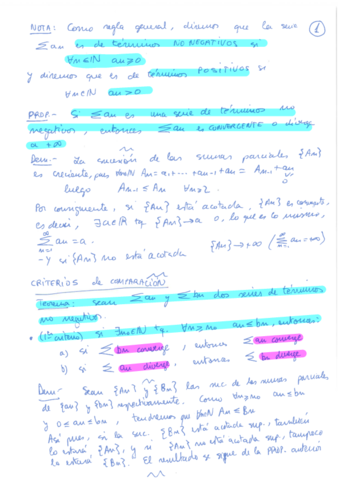 NOTA: Como regla general, diremos que la serie ①
Σan es de términos NO NEGATIVOS si
∀n∈ℕ an≥0
y diremos que es de términos POSITIVOS si
∀n∈ℕ an>0
PROP.- Si Σan es una serie de términos no
negativos, entonces Σan es CONVERGENTE o diverge
a +∞
Dem.- La sucesión de las sumas parciales {An}
es creciente, pues ∀n∈ℕ An = a1+...+an-1+an = An-1+an
0
luego An-1 ≤ An ∀n≥2.
Por consiguiente, si {An} está acotada, {An} es converg,
es decir, ∃a∈ℝ tq. {An}→a, o lo que es lo mismo,
Σ an = a.
- Y si {An} no está acotada {An}→+∞ (Σ an = +∞)
CRITERIOS de COMPARACIÓN
Teorema: Sean Σan y Σbn dos series de términos
no negativos.
• (1er criterio) si ∃n0∈ℕ tq. ∀n≥n0 an≤bn, entonces:
a) si Σbn converge, entonces Σan converge
b) si Σan diverge, entonces Σbn diverge
Dem: Sean {An} y {Bn} las suc. de las sumas parciales
de {an} y {bn} respectivamente. Como ∀n≥n0 an≤bn
y 0≤an≤bn, tendremos que ∀n∈ℕ An≤Bn
Así pues, si la suc. {Bn} está acotada sup., también
lo estará {An}, y si {An} no está acotada sup., tampoco
lo estará {Bn}. El resultado se sigue de la PROP. anterior